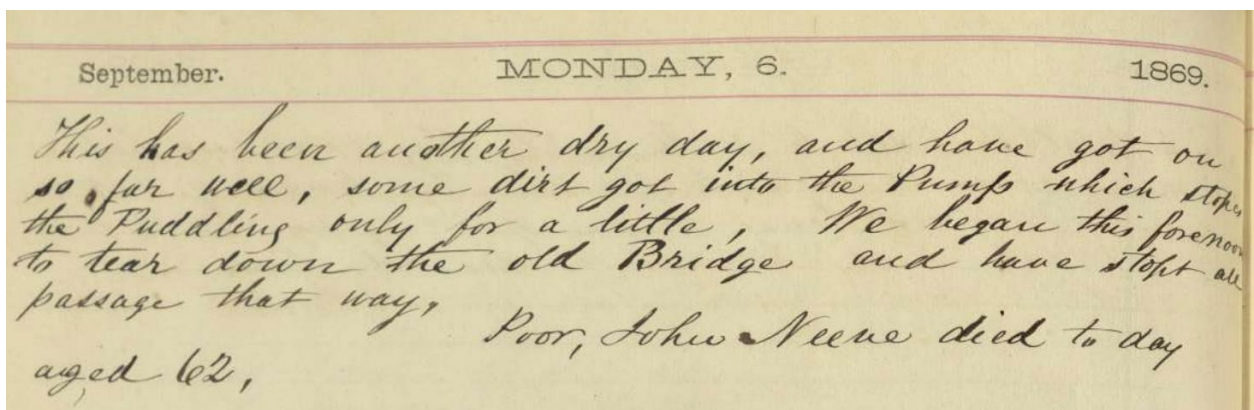 September. MONDAY, 6. 1869.
This has been another dry day, and have got on
so far well, some dirt got into the Pump which stopes
the Puddling only for a little, We began this forenoon
to tear down the old Bridge and have stopt all
passage that way,
Poor, John Neeve died to day
aged 62,